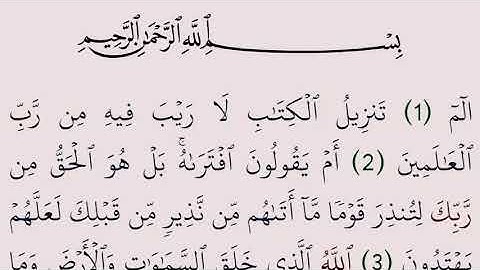 بِسْمِ ٱللَّهِ ٱلرَّحْمَٰنِ ٱلرَّحِيمِ
الٓمٓ (1) تَنزِيلُ ٱلْكِتَٰبِ لَا رَيْبَ فِيهِ مِن رَّبِّ
ٱلْعَٰلَمِينَ (2) أَمْ يَقُولُونَ ٱفْتَرَىٰهُۚ بَلْ هُوَ ٱلْحَقُّ مِن
رَّبِّكَ لِتُنذِرَ قَوْمًا مَّآ أَتَىٰهُم مِّن نَّذِيرٍ مِّن قَبْلِكَ لَعَلَّهُمْ
يَهْتَدُونَ (3) ٱللَّهُ ٱلَّذِى خَلَقَ ٱلسَّمَٰوَٰتِ وَٱلْأَرْضَ وَمَا